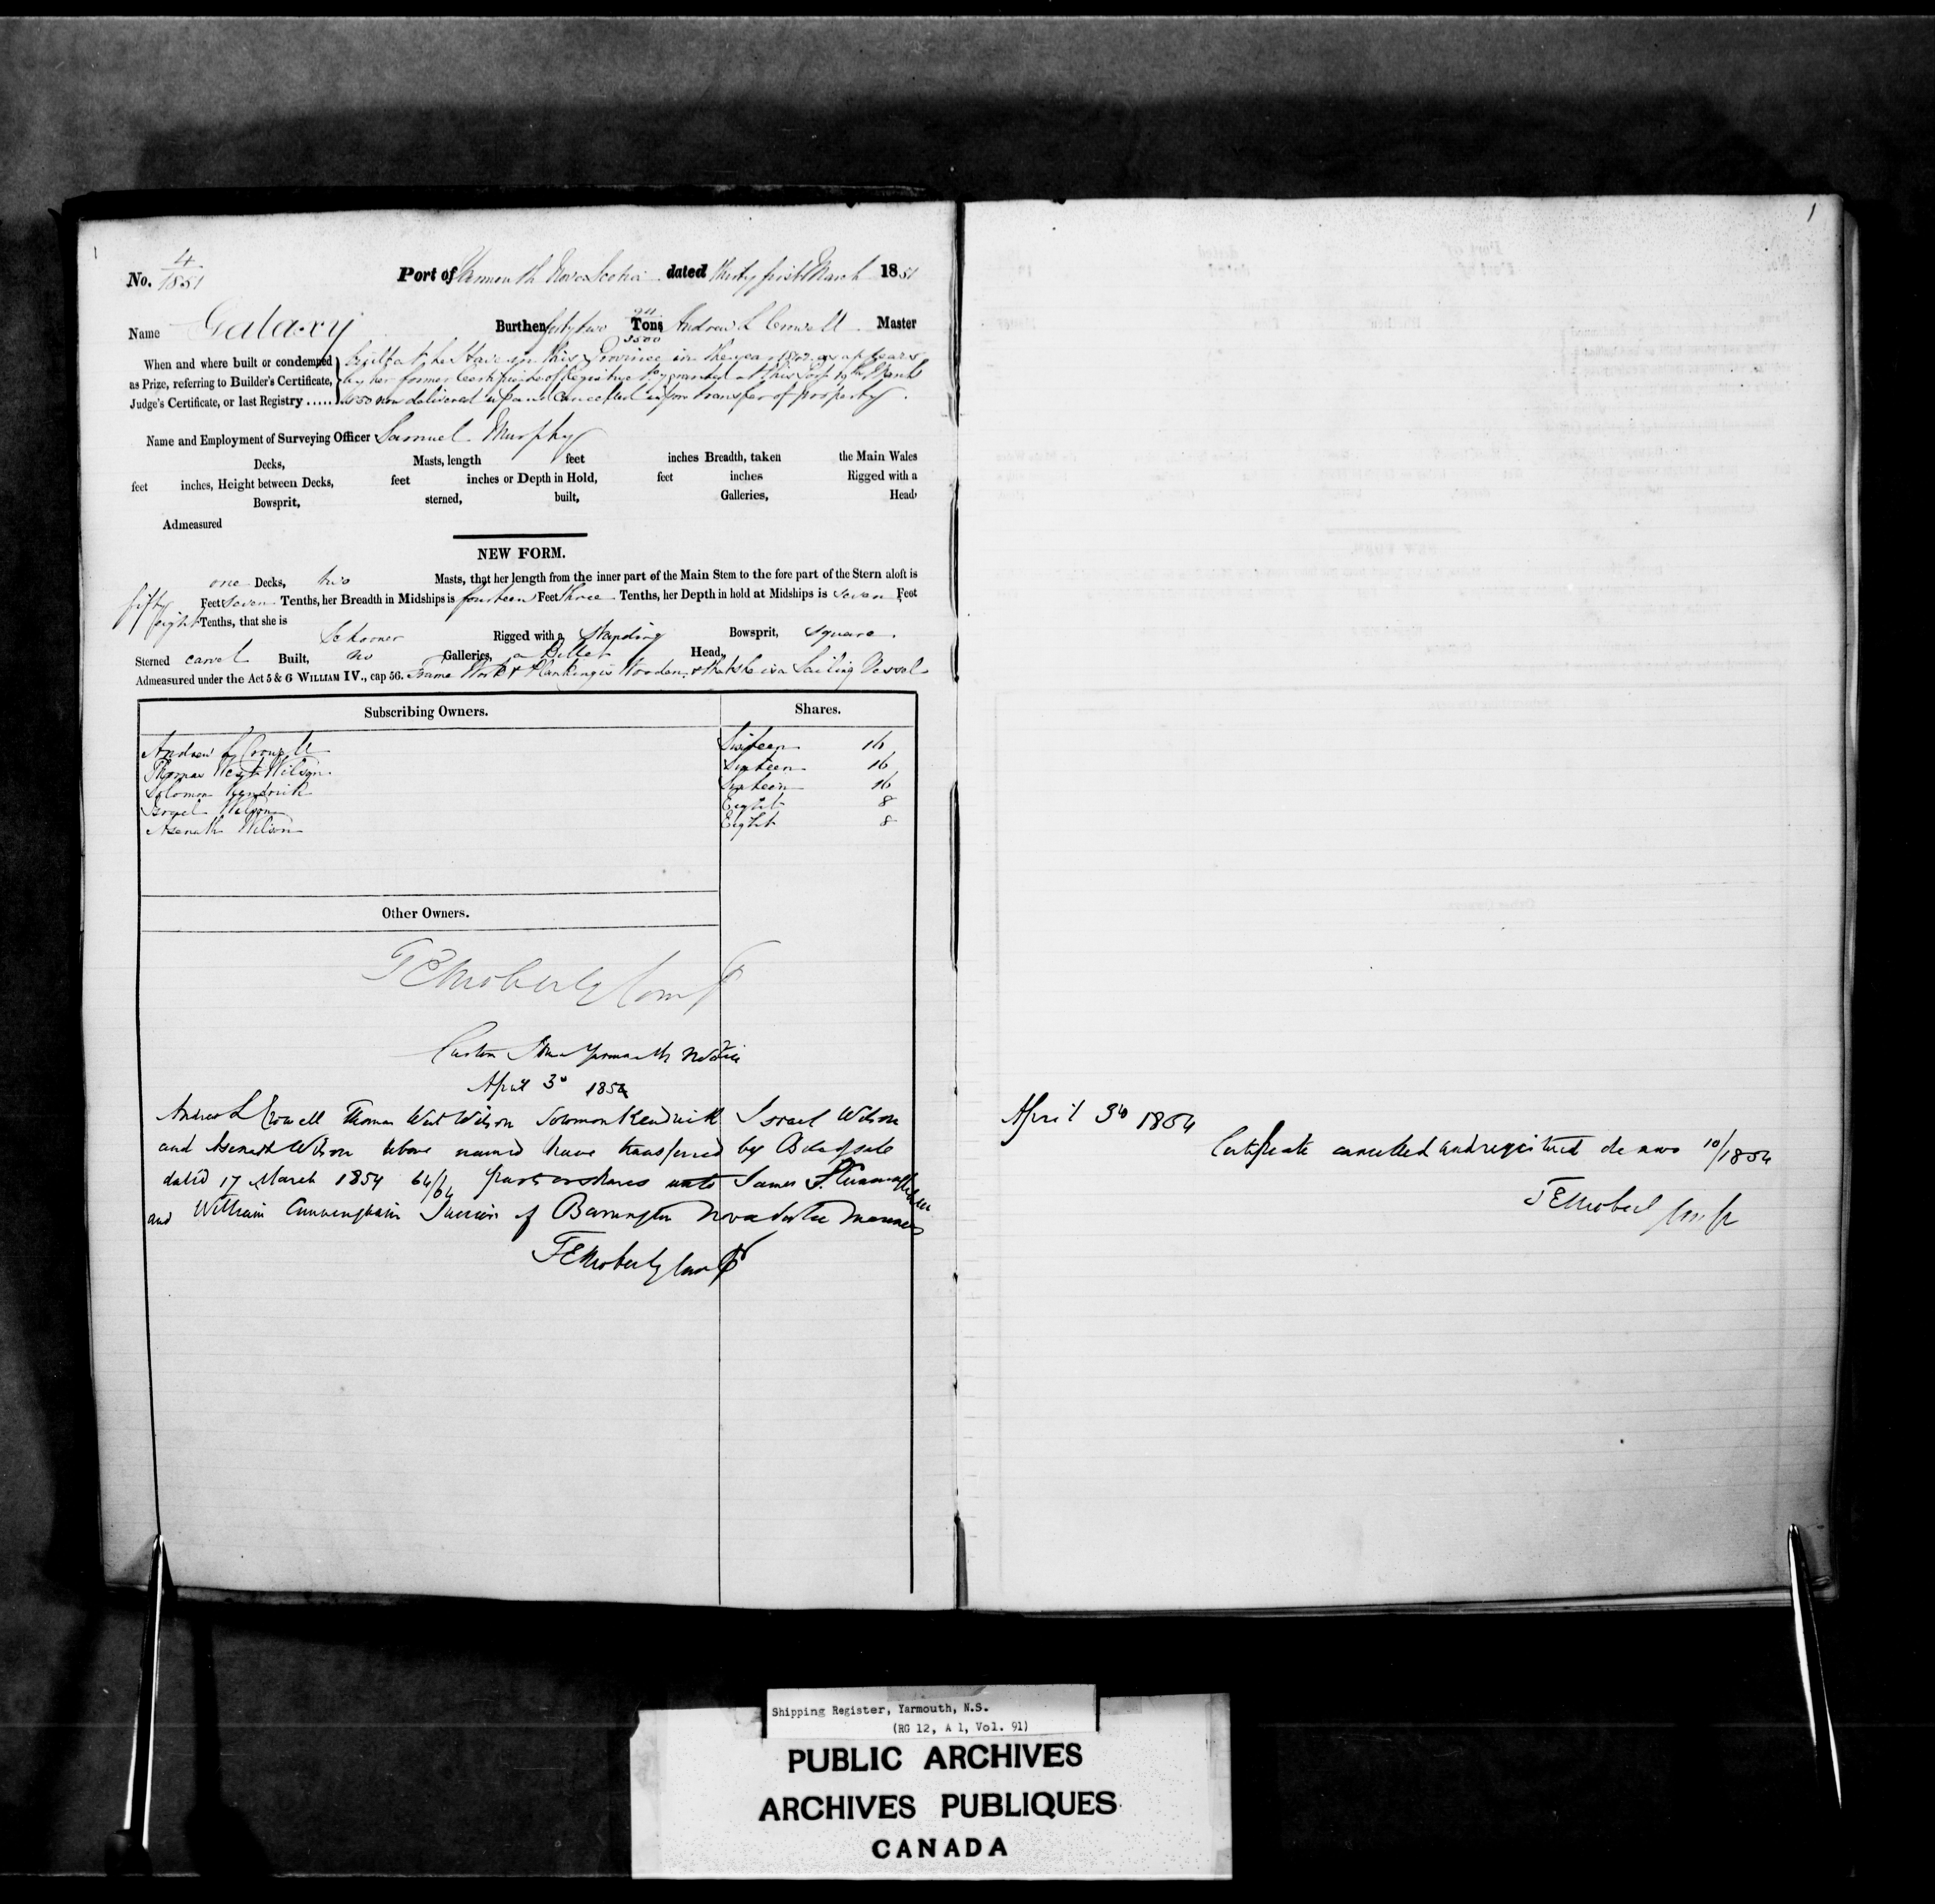 1
No. 4/1851 Port of Yarmouth Nova Scotia dated thirty first March 1851
Name Galaxy Burthen forty two Tons 3500 Andrew L Crowell Master
When and where built or condemned built at in this Province in the year as appears
as Prize, referring to Builder's Certificate, by her former Certificate of Registry granted at this Port 19th March
Judge's Certificate, or last Registry ..... 1850 now delivered up and Cancelled upon transfer of property.
Name and Employment of Surveying Officer Samuel Murphy
Decks, Masts, length feet inches Breadth, taken the Main Wales
feet inches, Height between Decks, feet inches or Depth in Hold, feet inches Rigged with a
Bowsprit, sterned, built, Galleries, Head
Admeasured
NEW FORM.
one Decks, two Masts, that her length from the inner part of the Main Stem to the fore part of the Stern aloft is
fifty Feet seven Tenths, her Breadth in Midships is fourteen Feet three Tenths, her Depth in hold at Midships is seven Feet
eight Tenths, that she is
Schooner Rigged with a Standing Bowsprit, square.
Sterned carvel Built, no Galleries, a Billet Head,
Admeasured under the Act 5 & 6 WILLIAM IV., cap 56. Frame Work & Planking is Wooden, & that she is a Sailing Vessel
Subscribing Owners. Shares.
Andrew L Crowell Sixteen 16
Thomas West Wilson Sixteen 16
Solomon Kendrick Sixteen 16
Israel Wilson Eight 8
Asenath Wilson Eight 8
Other Owners.
T E Moberly Compr
Custom House Yarmouth N Scotia
April 3d 1854
Andrew L Crowell Thomas West Wilson Solomon Kendrick Israel Wilson
and Asenath Wilson above named have transferred by Bill of sale
dated 17 March 1854 64/64 parts or shares unto James
and William Cunningham Junior of Barrington Nova Scotia Mariners
T E Moberly Compr
1
April 3d 1854
Certificate cancelled and registered de novo 10/1854
T E Moberly Compr
Shipping Register, Yarmouth, N.S.
(RG 12, A 1, Vol. 91)
PUBLIC ARCHIVES
ARCHIVES PUBLIQUES
CANADA